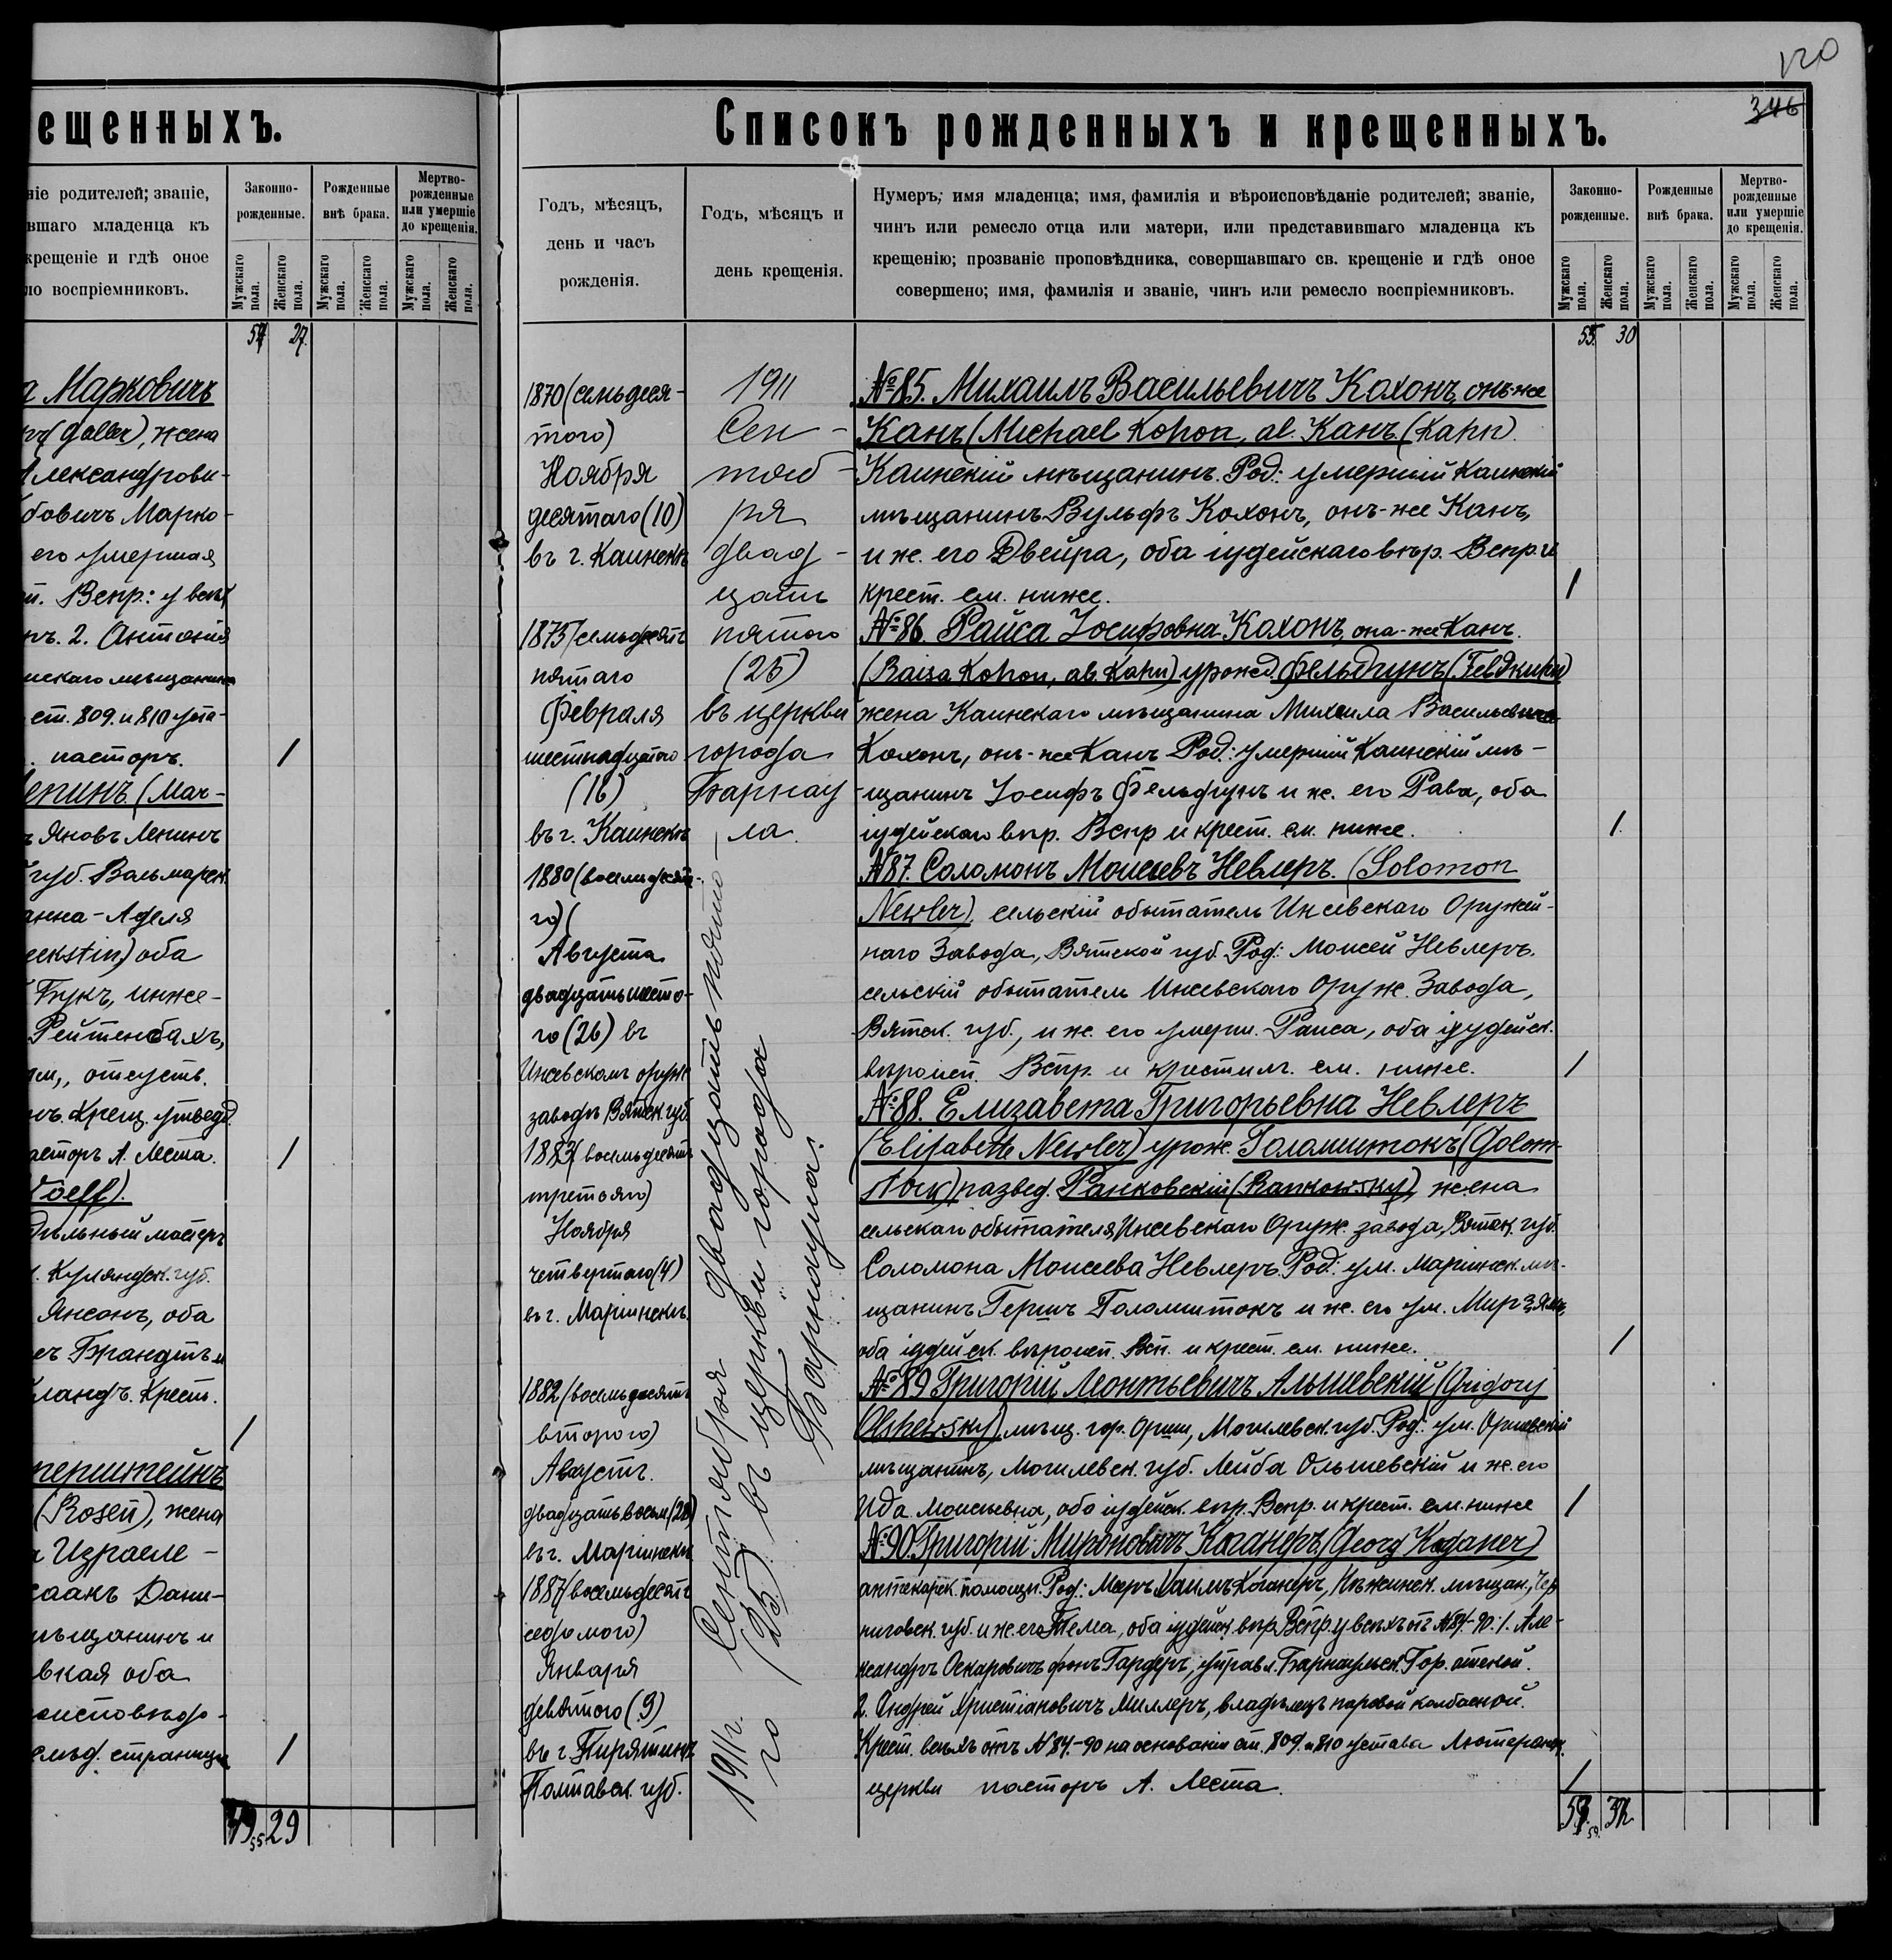 ещенныхъ.
ніе родителей; званіе,
вшаго младенца къ
крещеніе и гдѣ оное
ло воспріемниковъ.
Законно-
рожденные.
Рожденные
внѣ брака.
Мертво-
рожденные
или умершіе
до крещенія.
Мужскаго пола.
Женскаго пола.
Мужскаго пола.
Женскаго пола.
Мужскаго пола.
Женскаго пола.
27.
а Марковичъ
жена
Александрови-
бовичъ Марко-
его умершая
2. Антонія
ст. 809. и 810 уста-
пасторъ. 1
(Mar-
Яновъ Ленинъ
губ. Вольмарск.
анна-Аделя
eckstin) оба
Букъ, инже-
Рейтенбахъ,
отсутств.
асторъ А. Леста. 1
Woelf).
Курляндск. губ.
Янсонъ, оба
Брандтъ и
ландъ. Крест.
1
перштейнъ
(Rosen), жена
а Израеле-
саакъ Дани-
мѣщанинъ и
вская оба
оисповѣдо-
страницы 1
49 55 29
120
346
Списокъ рожденныхъ и крещенныхъ.
Годъ, мѣсяцъ,
день и часъ
рожденія.
Годъ, мѣсяцъ и
день крещенія.
Нумеръ; имя младенца; имя, фамилія и вѣроисповѣданіе родителей; званіе,
чинъ или ремесло отца или матери, или представившаго младенца къ
крещенію; прозваніе проповѣдника, совершавшаго св. крещеніе и гдѣ оное
совершено; имя, фамилія и званіе, чинъ или ремесло воспріемниковъ.
Законно-
рожденные.
Рожденные
внѣ брака.
Мертво-
рожденные
или умершіе
до крещенія.
Мужскаго пола.
Женскаго пола.
Мужскаго пола.
Женскаго пола.
Мужскаго пола.
Женскаго пола.
55. 30
1870 (семьдеся-
таго)
Ноября
десятаго (10)
въ г. Каинскѣ
1875 (семьдесятъ
пятаго
Февраля
шестнадцатаго
(16)
въ г. Каинскѣ
1880 (восьмидесята-
го)
Августа
двадцать шеста-
го (26) въ
Ижевскомъ оруж.
заводѣ Вятск. губ.
1883 (восемьдесятъ
третьяго)
Ноября
четвертаго (4)
въ г. Маріинскѣ.
1882 (восемьдесятъ
второго)
Августъ.
двадцать восьм. (28)
въ г. Маріинскѣ
1887 (восемьдесятъ
седьмого)
Января
девятаго (9)
въ г. Пирятинѣ
Полтавск. губ.
1911
Сен-
тяб-
ря
двад-
цать
пятого
(25)
въ церкви
города
Барнау-
ла.
1911 г. Сентября двадцать пято-
го (25) въ церкви города
Барнаула.
№ 85. Михаилъ Васильевичъ Кохонъ, онъ-же
Канъ (Michael Kohon, al. Канъ (Kahn).
Каинскій мѣщанинъ. Род: умершій Каинскій
мѣщанинъ Вульфъ Кохонъ, онъ-же Канъ,
и ж. его Двейра, оба іудейскаго вѣр. Воспр. и
крест. см. ниже. 1
№ 86. Раиса Іосифовна Кохонъ, она-же Канъ.
(Raisa Kohon, al. Kahn) урожд. Фельдгунъ
жена Каинскаго мѣщанина Михаила Васильевича
Кохонъ, онъ-же Канъ. Род.: умершій Каинскій мѣ-
щанинъ Іосифъ Фельдгунъ и ж. его Рава, оба
іудейскаго вѣр. Воспр и крест. см. ниже. 1.
№ 87. Соломонъ Моисеевъ Невлеръ. (Solomon
Newler), сельскій обыватель Ижевскаго Оружей-
наго Завода, Вятской губ. Род: Моисей Невлеръ.
сельскій обыватель Ижевскаго Оруж. Завода,
Вятск. губ., и ж. его умерш. Раиса, оба іудейск.
вѣроисп. Воспр. и крестил. см. ниже. 1
№ 88. Елизавета Григорьевна Невлеръ
(Elisabeth Newler) урож.Голомштокъ (Golom-
stock) развед. Ранковскій (Rankowsky), жена
сельскаго обывателя, Ижевскаго Оруж. завода, Вятск. губ.
Соломона Моисеева Невлеръ. Род: ум. Маріинск. мѣ-
щанинъ Гершъ Голомштокъ и ж. его ум.
оба іудейск. вѣроисп. Всп. и крест. см. ниже. 1
№ 89 Григорій Леонтьевичъ Альшевскій (Grigory
Olshewsky) мѣщ. гор. Орши, Могилевск. губ. Род.: ум. Оршевскій
мѣщанинъ, Могилевск. губ. Лейба Ольшевскій и ж. его
Ида Моисеевна, оба іудейск. вѣр. Воспр. и крест. см. ниже 1
№ 90. Григорій Мироновичъ Каганеръ (Georg Kaganer)
аптекарск. помощн. Род.: Мееръ Хаимъ Каганеръ, Нѣжинск. мѣщан., Чер-
ниговск. губ. и ж. его Тема, оба іудейск. вѣр. Воспр. у всѣхъ отъ № 84-90: 1. Але-
ксандръ Оскаровичъ фонъ Гардеръ, управл. Барнаульск. Гор. аптекой.
2. Андрей Христіановичъ Миллеръ, владѣлецъ паровой колбасной.
Крест. всѣхъ отъ № 84.-90 на основаніи ст. 809. и 810 устава Лютеранск.
церкви пасторъ А. Леста. 1
59. 32